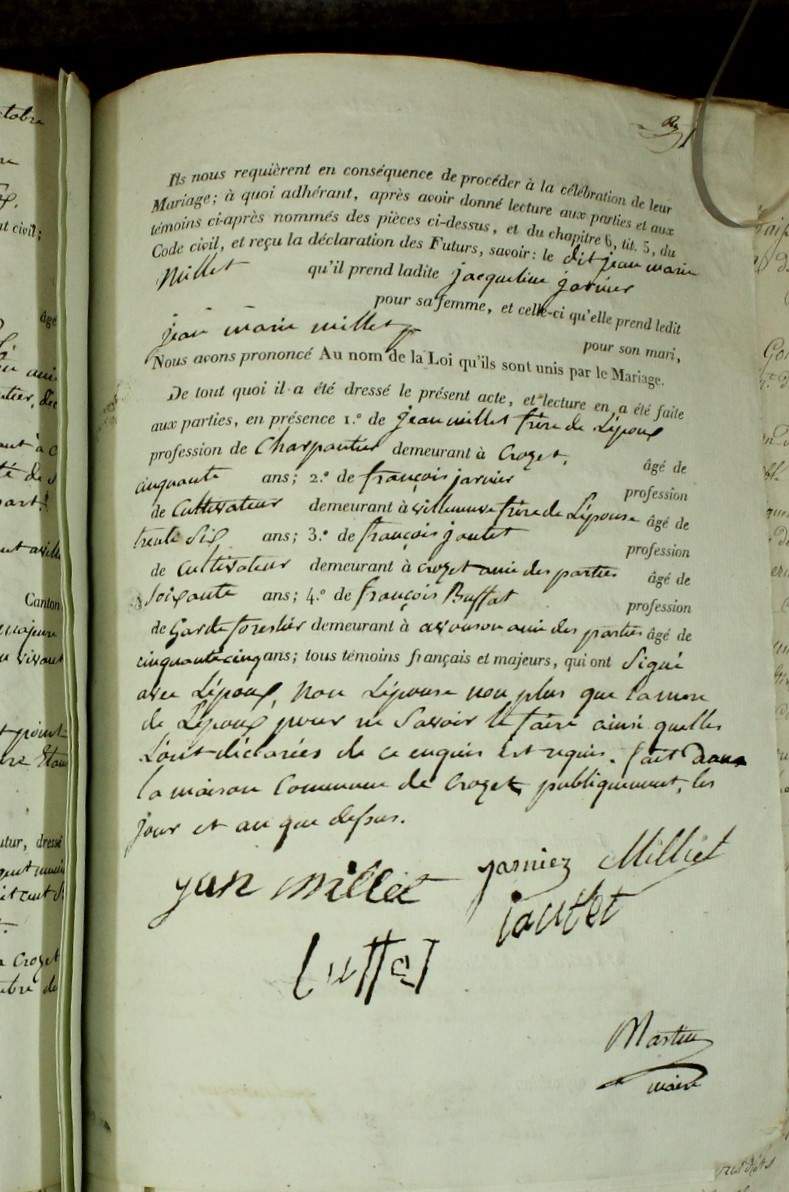 Ils nous requièrent en conséquence de procéder à la célébration de leur
Mariage; à quoi adhérant, après avoir donné lecture aux parties et aux
témoins ci-après nommés des pièces ci-dessus, et du chapitre 6, tit. 5, du
Code civil, et reçu la déclaration des Futurs, savoir: le dit jean marie
Millet qu'il prend ladite jacqueline jarnier
pour sa femme, et celle-ci qu'elle prend ledit
jean marie millet pour son mari,
Nous avons prononcé Au nom de la Loi qu'ils sont unis par le Mariage.
De tout quoi il a été dressé le présent acte, et lecture en a été faite
aux parties, en présence 1.º de jean millet frère de Lépoux
profession de Charpantier demeurant à Crozet, âgé de
cinquante ans; 2.º de françois jarnier profession
de Cultivateur demeurant à villeneuve frère de Lépouse âgé de
trente Six ans; 3.º de françois joutet profession
de Cultivateur demeurant à crozet amie des parties âgé de
Soixante ans; 4.º de françois Buffat profession
de Garde forestier demeurant à avouson amie des parties âgé de
cinquante cinq ans; tous témoins français et majeurs, qui ont Signé
avec Lépoux, Non Lépouse non plus que la mere
de Lépoux pour ne Savoir le faire ainsi quelles
L'ont déclarées de ce enquis et requis. fait dans
la maison Commune de Crozet publiquement, les
jour et an que dessus.
jan millet jarniez Milliet
jouttet
buffat
Martin
maire
ctobre
nt civil;
âgé
Canton
majeure
vivant
utur, dressé
Crozet